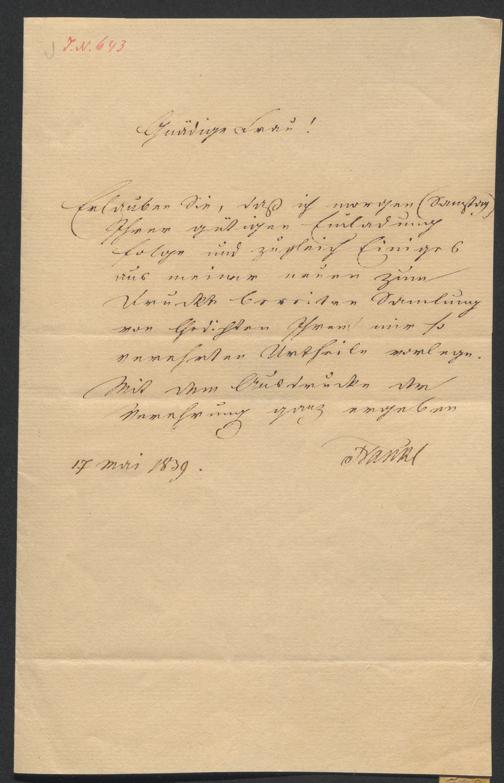 J.N. 643
Gnädige Frau!
Erlauben Sie, daß ich morgen (Samstag)
Ihrer gütigen Einladung
folge und zugleich Einiges
aus meiner neuen zum
Drucke bereiten Samlung
von Gedichten Ihrem mir so
verehrten Urtheile vorlege.
Mit dem Ausdrucke der
Verehrung ganz ergeben
17 Mai 1839. Frankl